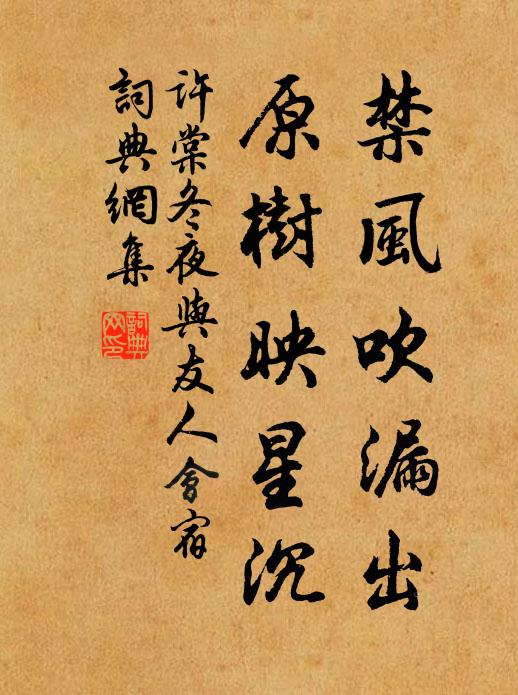 禁風吹漏出
原樹映星沉
許棠冬夜與友人會宿
詞典網集
詞典網印